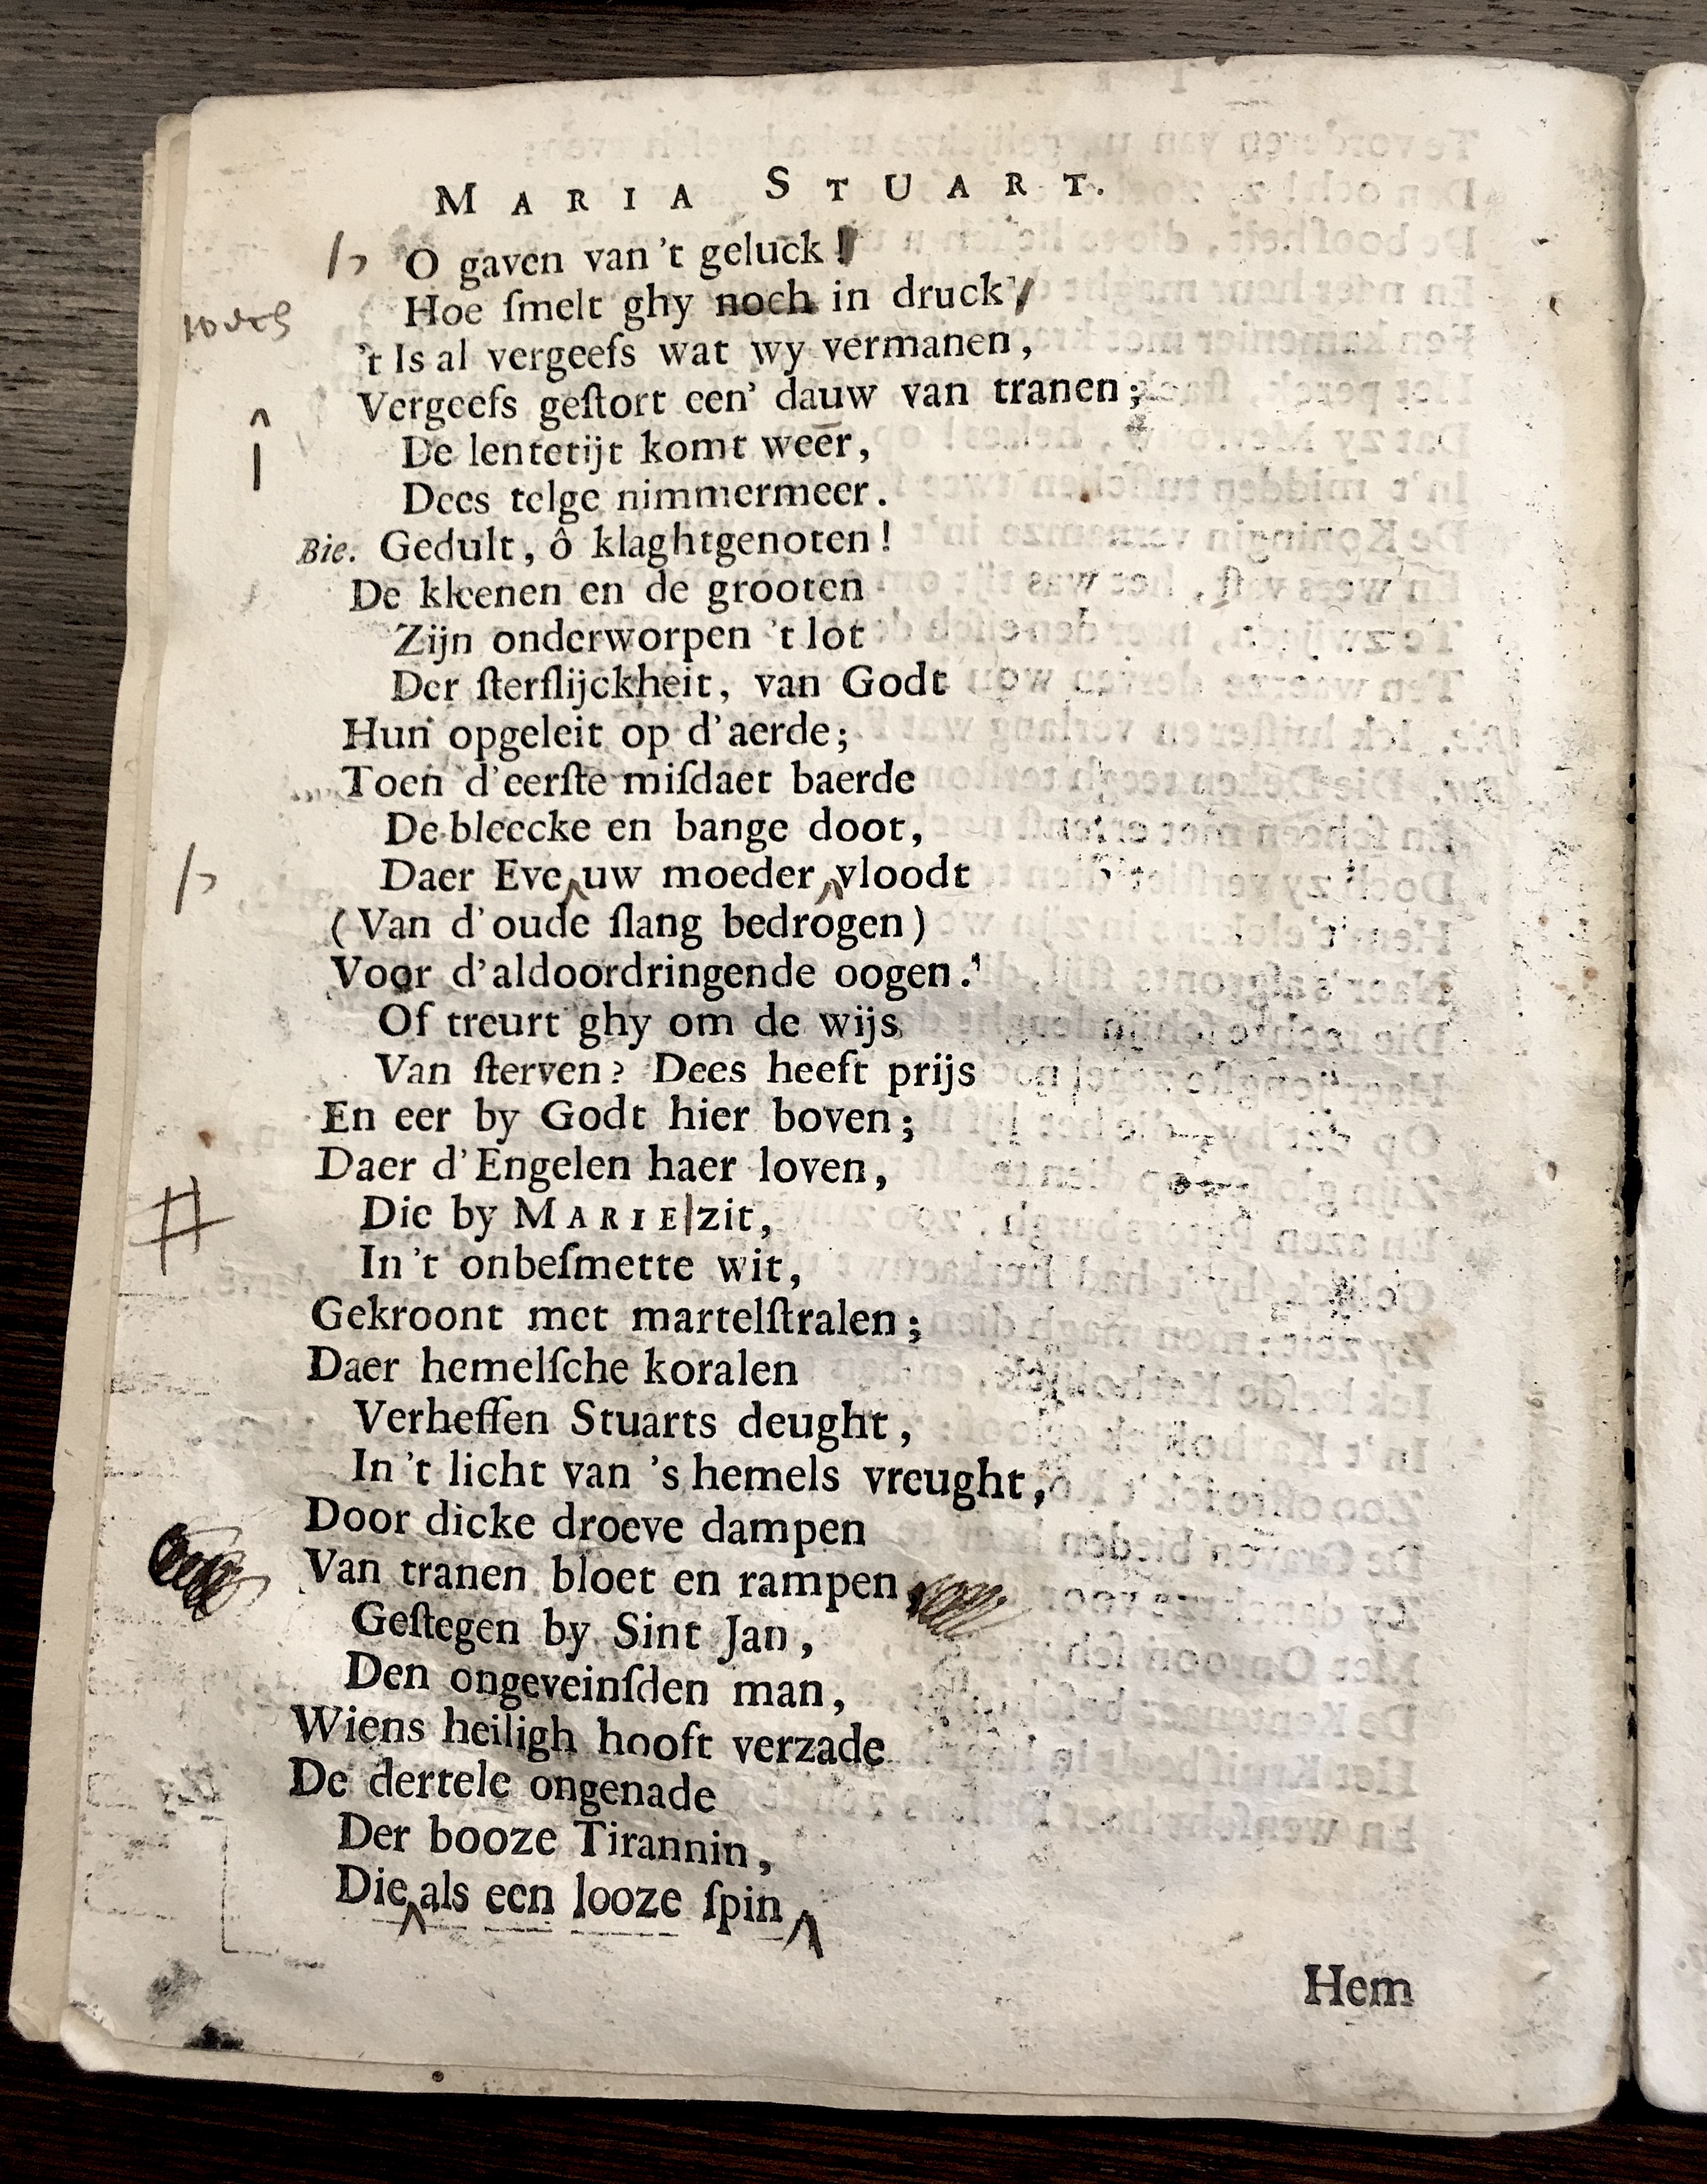 MARIA STUART.
O gaven van 't geluck!
Hoe ſmelt ghy noch in druck
't Is al vergeefs wat wy vermanen,
Vergeefs geſtort een' dauw van tranen;
De lentetijt komt weêr,
Dees telge nimmermeer.
Bie. Gedult, ô klaghtgenoten!
De kleenen en de grooten
Zijn onderworpen 't lot
Der ſterflijckheit, van Godt
Hun opgeleit op d'aerde;
Toen d'eerſte miſdaet baerde
De bleecke en bange doot,
Daer Eve uw moeder vloodt
(Van d'oude ſlang bedrogen)
Voor d'aldoordringende oogen.
Of treurt ghy om de wijs
Van ſterven? Dees heeft prijs
En eer by Godt hier boven;
Daer d'Engelen haer loven,
Die by MARIE zit,
In 't onbeſmette wit,
Gekroont met martelſtralen;
Daer hemelſche koralen
Verheffen Stuarts deught,
In 't licht van 's hemels vreught,
Door dicke droeve dampen
Van tranen bloet en rampen,
Geſtegen by Sint Jan,
Den ongeveinſden man,
Wiens heiligh hooft verzade
De dertele ongenade
Der booze Tirannin,
Die als een looze ſpin
Hem